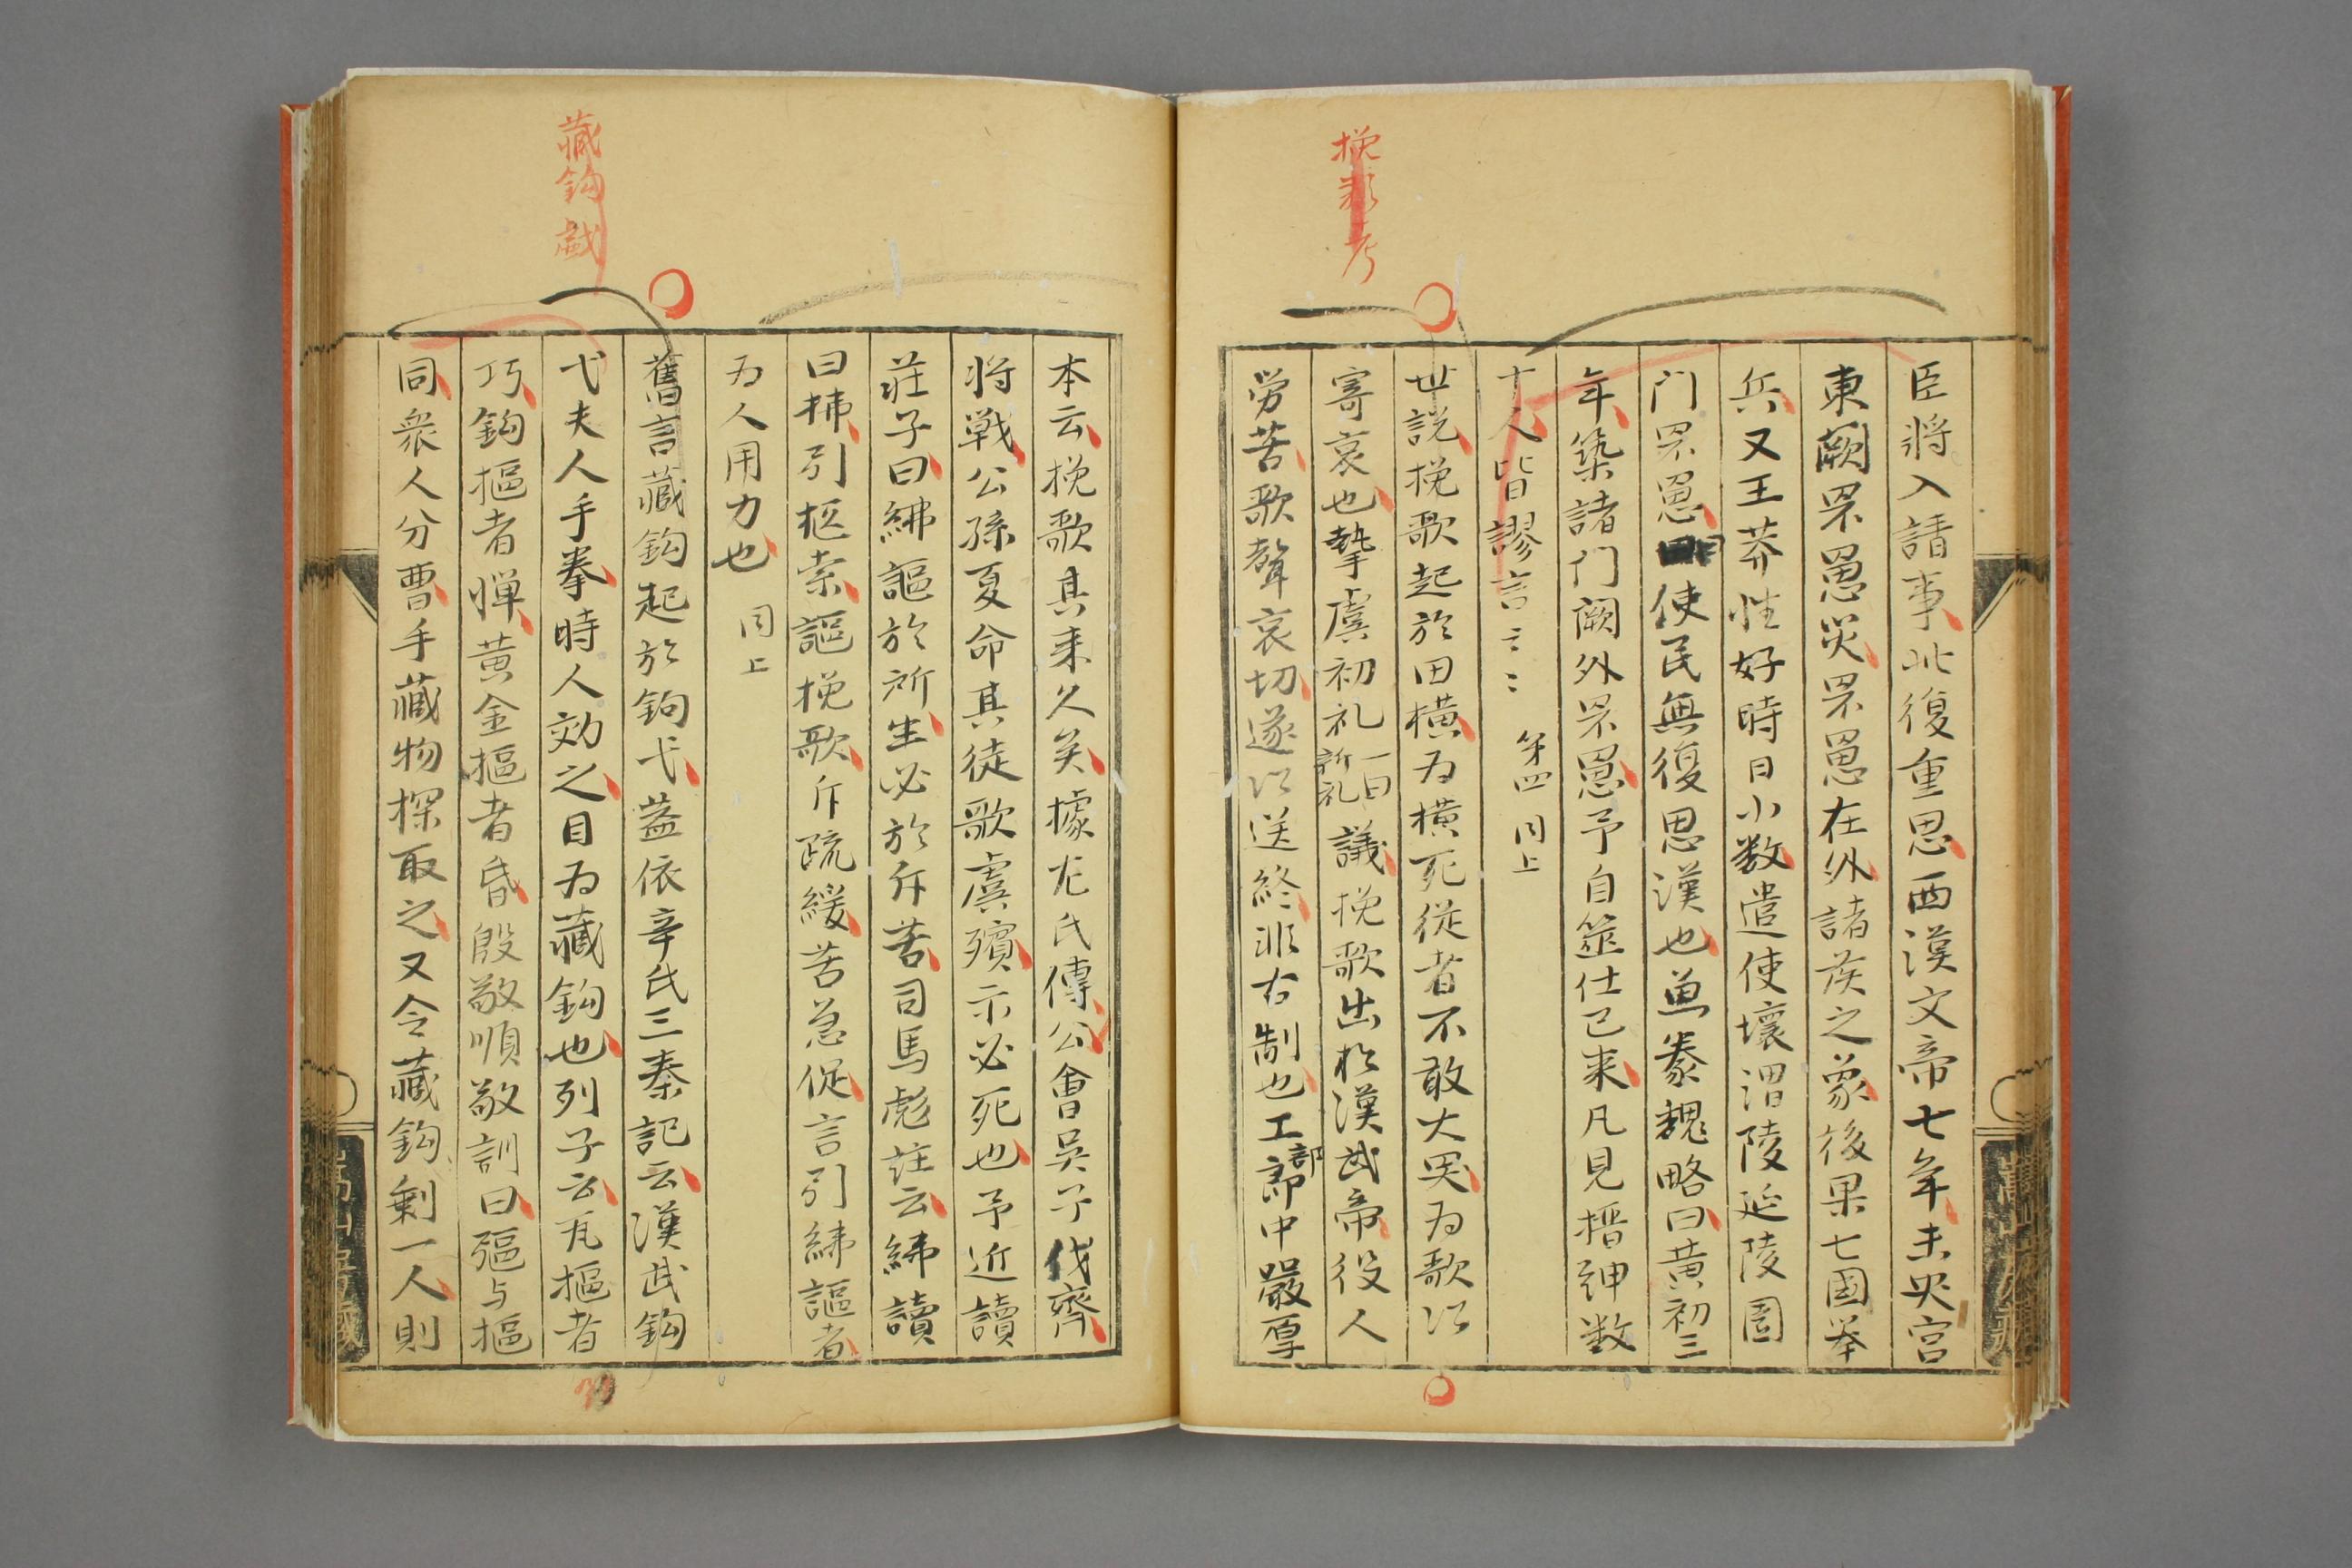 臣將入請事此復重思西漢文帝七年未央宮
東闕罘罳災罘罳在外諸侯之象後果七國舉
兵又王莽性好時日小数遣使壞渭陵延陵園
门罘罳使民無復思漢也魚豢魏略曰黄初三
年築諸门闕外罘罳予自筮仕已来凡見搢紳数
十人皆謬言云云 第四 同上
挽歌考
世説挽歌起於田橫为橫死従者不敢大哭为歌以
寄哀也摯虞初礼一曰新礼議挽歌出於漢武帝役人
勞苦歌聲哀切遂以送終非古制也工部郎中嚴厚
本云挽歌其来久矣據左氏傳公會吴子伐齊
将戰公孫夏命其徒歌虞殯示必死也予近讀
莊子曰紼謳於所生必於斥苦司馬彪註云紼讀
曰拂引柩索謳挽歌斥疏緩苦急促言引紼謳者
为人用力也 同上
藏鈎戯
舊言藏鈎起於鉤弋葢依辛氏三秦記云漢武鈎
弋夫人手拳時人効之目为藏鈎也列子云瓦摳者
巧鈎摳者憚黄金摳者昏殷敬順敬訓曰彄与摳
同衆人分曹手藏物探取之又令藏鈎剰一人則